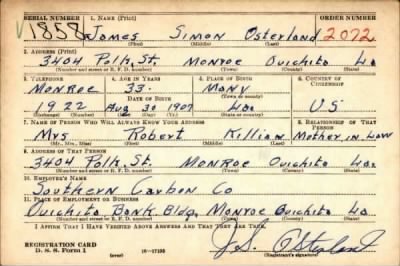 SERIAL NUMBER 1. NAME (Print) ORDER NUMBER
V1858 James Simon Osterland 2072
(First) (Middle) (Last)
2. ADDRESS (Print)
3404 Polk, St. MONROE Ouichita La
(Number and street or R. F. D. number) (Town) (County) (State)
3. TELEPHONE 4. AGE IN YEARS 5. PLACE OF BIRTH 6. COUNTRY OF CITIZENSHIP
MONROE 33.
(Town or county)
DATE OF BIRTH
1922 Aug 30 1907 La. US
(Exchange) (Number) (Mo.) (Day) (Yr.) (State or country)
7. NAME OF PERSON WHO WILL ALWAYS KNOW YOUR ADDRESS 8. RELATIONSHIP OF THAT PERSON
Mrs Robert Killian Mother in Law
(Mr., Mrs., Miss) (First) (Middle) (Last)
9. ADDRESS OF THAT PERSON
3404 Polk, St. MONROE Ouichita La.
(Number and street or R. F. D. number) (Town) (County) (State)
10. EMPLOYER'S NAME
Southern Carbon Co
11. PLACE OF EMPLOYMENT OR BUSINESS
Ouichita Bank Bldg. MONROE Ouichita La
(Number and street or R. F. D. number) (Town) (County) (State)
I AFFIRM THAT I HAVE VERIFIED ABOVE ANSWERS AND THAT THEY ARE TRUE.
REGISTRATION CARD
D. S. S. Form 1
16—17105
J. S. Osterland
(Registrant's signature)